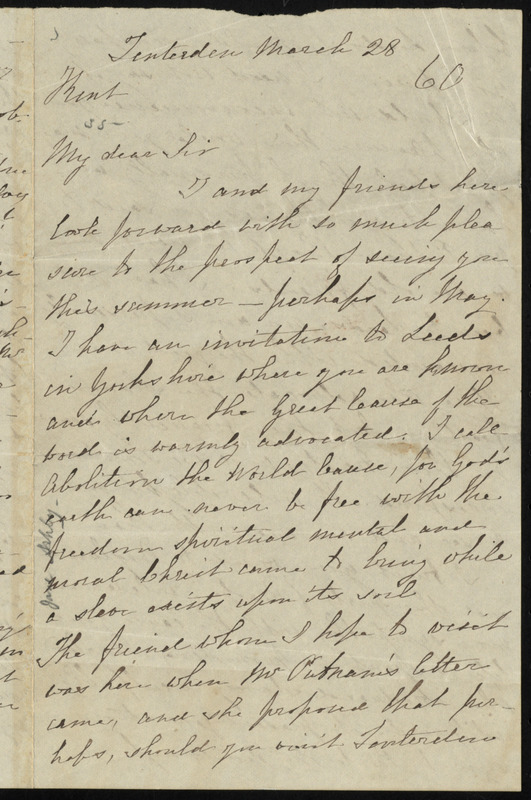 Tenterden March 28
60
Kent
My dear Sir
I and my friends here
look forward with so much plea
sure to the prospect of seeing you
this summer — perhaps in May.
I have an invitation to Leeds
in Yorkshire where you are known
and where the Great Cause of the
world is warmly advocated. I call
Abolition the World Cause, for God's
earth can never be free with the
freedom spiritual mental and
moral Christ came to bring while
a slave exists upon its soil
The friend whom I hope to visit
was here when Mr Putnam's letter
came, and she proposed that per-
haps, should you visit Tenterden
Jane Ashby